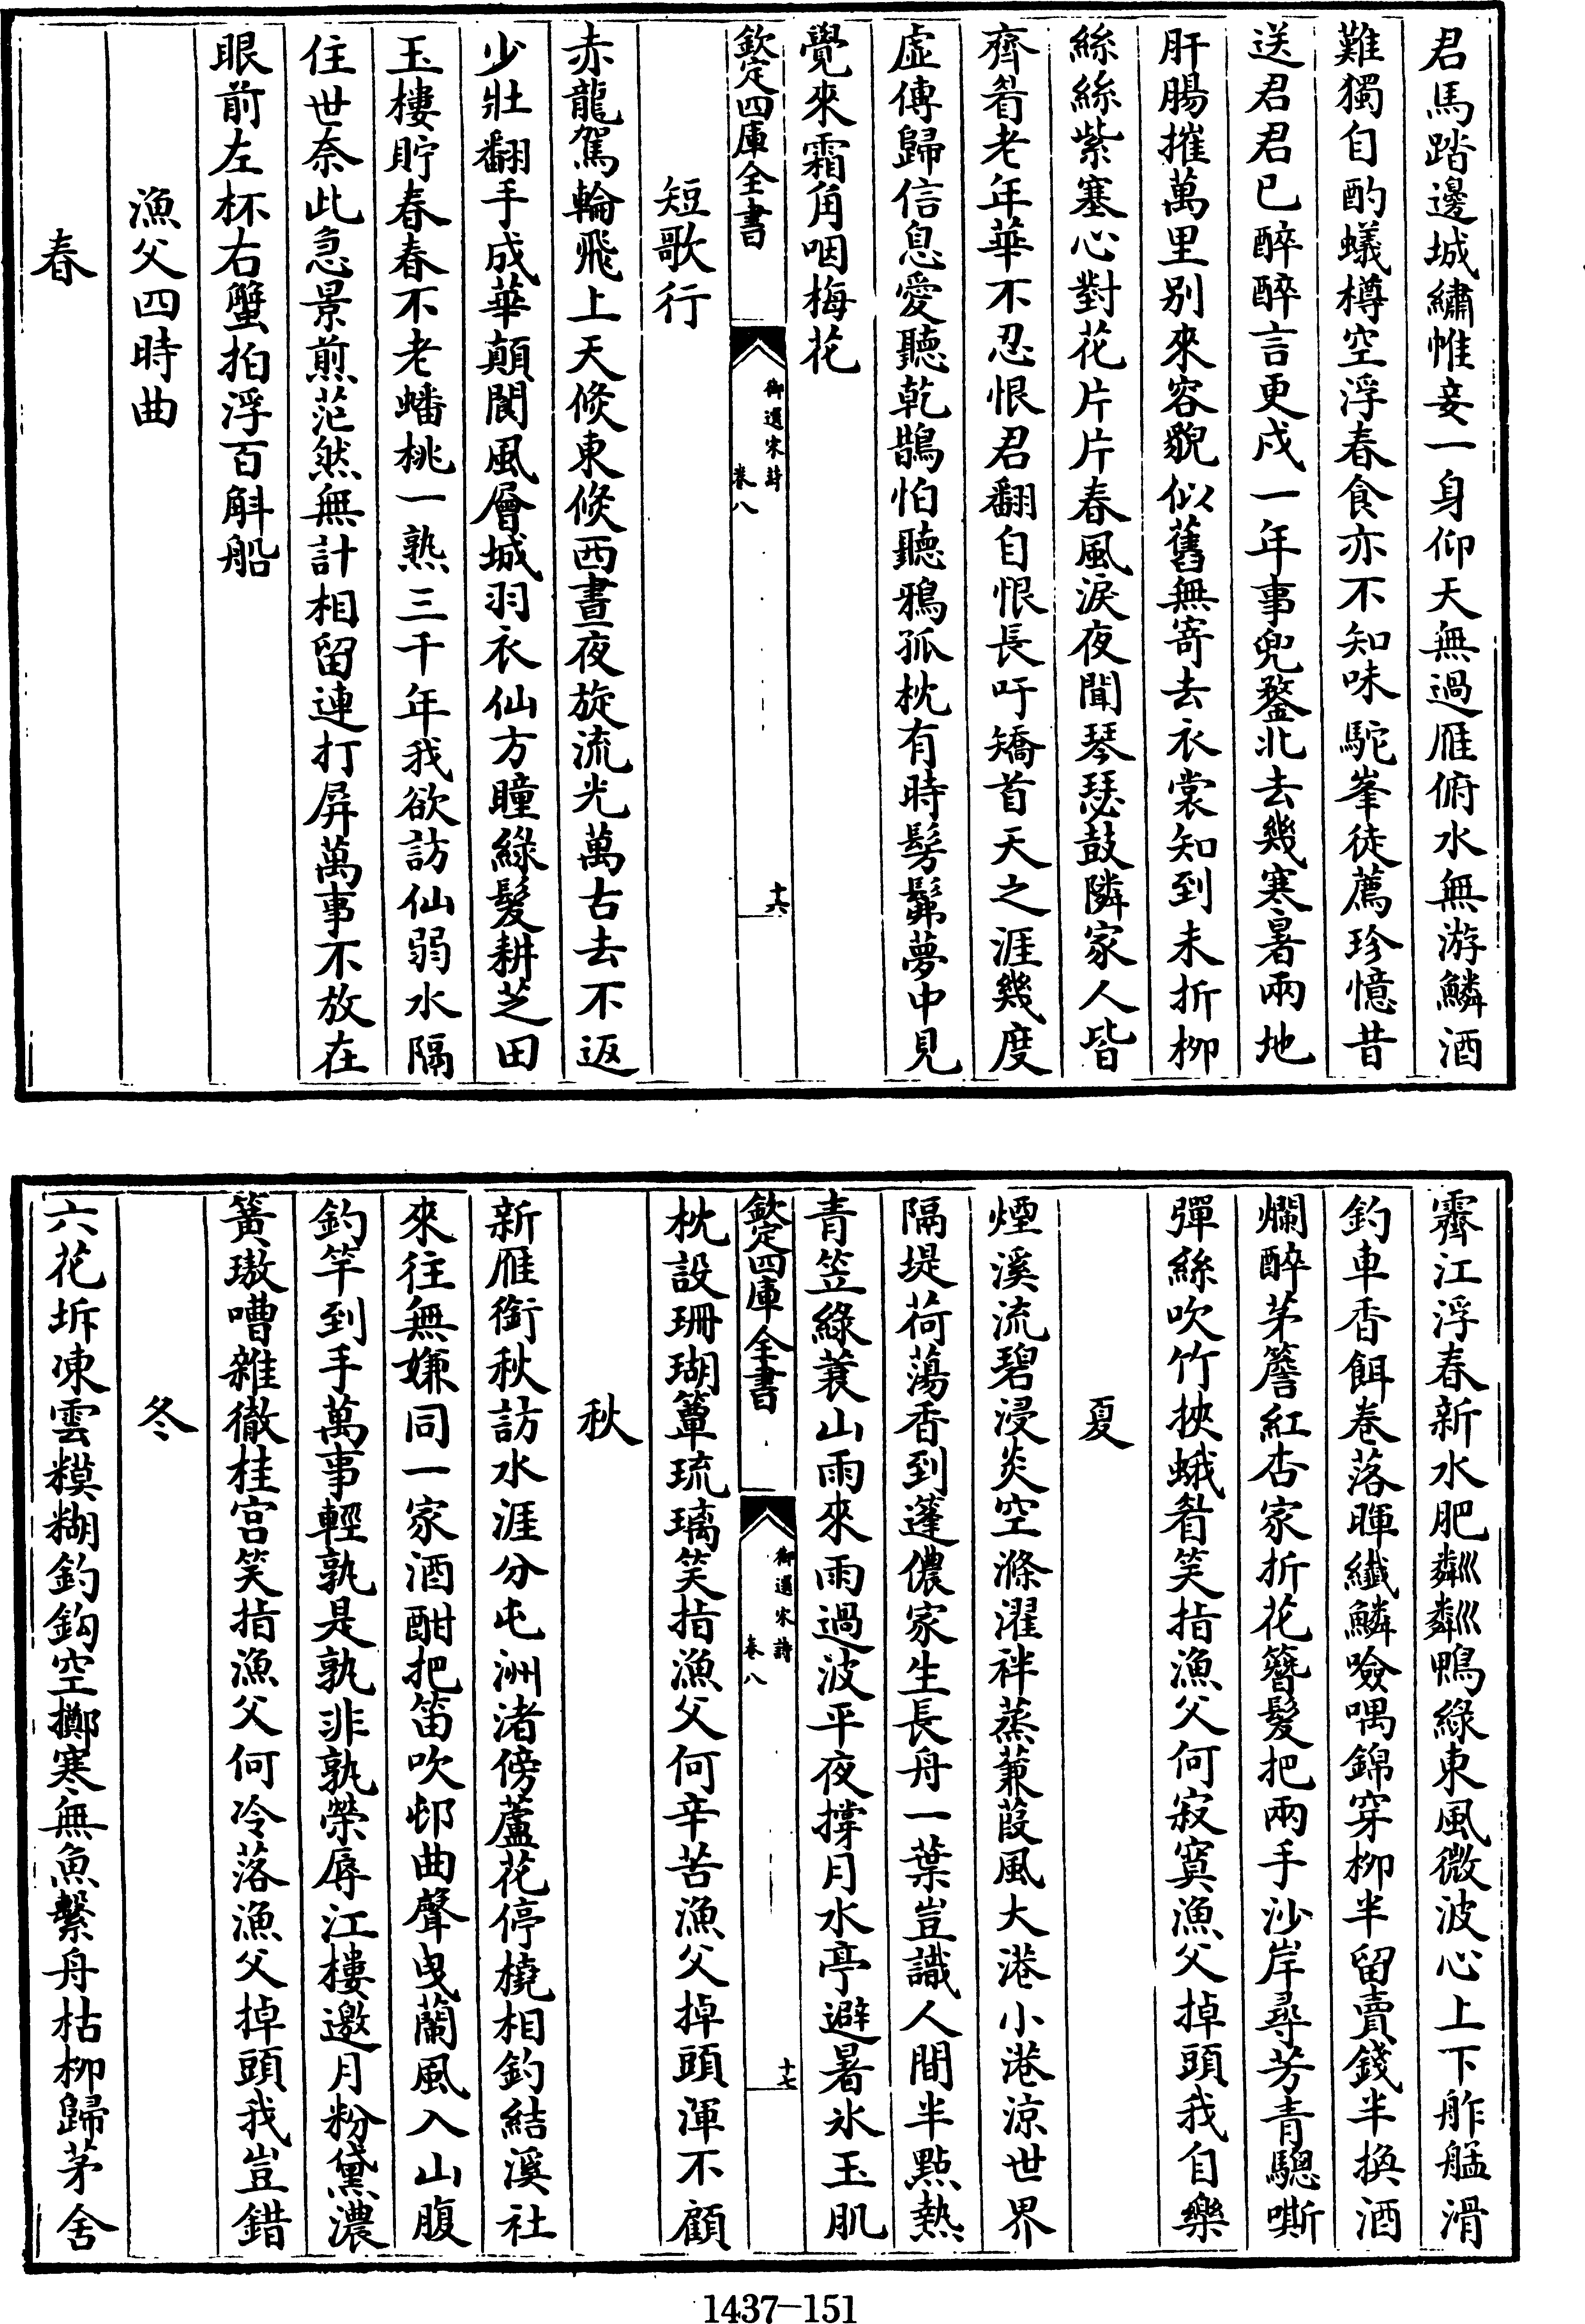 君馬踏邊城繡帷妾一身仰天無過雁俯水無游鱗酒
難獨自酌蟻樽空浮春食亦不知味駝峯徒薦珍憶昔
送君君已醉醉言更戍一年事兜鍪北去幾寒暑兩地
肝腸摧萬里別來容貌似舊無寄去衣裳知到未折柳
絲絲紫塞心對花片片春風淚夜聞琴瑟鼓隣家人皆
齊眉老年華不忍恨君翻自恨長吁矯首天之涯幾度
虛傳歸信息愛聽乾鵲怕聽鴉孤枕有時髣髴夢中見
覺來霜角咽梅花
欽定四庫全書
御選宋詩
卷八
十六
短歌行
赤龍駕輪飛上天倐東倐西晝夜旋流光萬古去不返
少壯翻手成華顛閬風層城羽衣仙方瞳綠髮耕芝田
玉樓貯春春不老蟠桃一熟三千年我欲訪仙弱水隔
住世奈此急景煎茫然無計相留連打屏萬事不放在
眼前左杯右蟹拍浮百斛船
漁父四時曲
春
霽江浮春新水肥粼粼鴨綠東風微波心上下舴艋滑
釣車香餌卷落暉纖鱗噞喁錦穿柳半留賣錢半換酒
爛醉茅簷紅杏家折花簪髮把兩手沙岸尋芳青驄嘶
彈絲吹竹挾蛾眉笑指漁父何寂寞漁父掉頭我自樂
夏
煙溪流碧浸炎空滌濯袢蒸蒹葭風大港小港涼世界
隔堤荷蕩香到蓬儂家生長舟一葉豈識人間半點熱
青笠綠蓑山雨來雨過波平夜撐月水亭避暑氷玉肌
欽定四庫全書
御選宋詩
卷八
十七
枕設珊瑚簟琉璃笑指漁父何辛苦漁父掉頭渾不顧
秋
新雁銜秋訪水涯分屯洲渚傍蘆花停橈相釣結溪社
來往無嫌同一家酒酣把笛吹邨曲聲曳蘭風入山腹
釣竿到手萬事輕孰是孰非孰榮辱江樓邀月粉黛濃
簧璈嘈雜徹桂宮笑指漁父何冷落漁父掉頭我豈錯
冬
六花坼凍雲糢糊釣鈎空擲寒無魚繫舟枯柳歸茅舍
1437—151